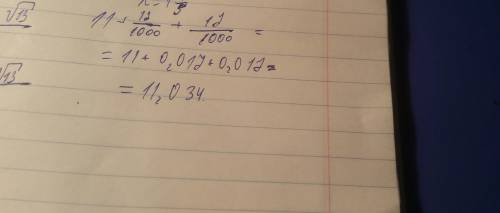 √13
11 + 17/1000 + 17/1000 =
= 11 + 0,017 + 0,017 =
√13
= 11,034.